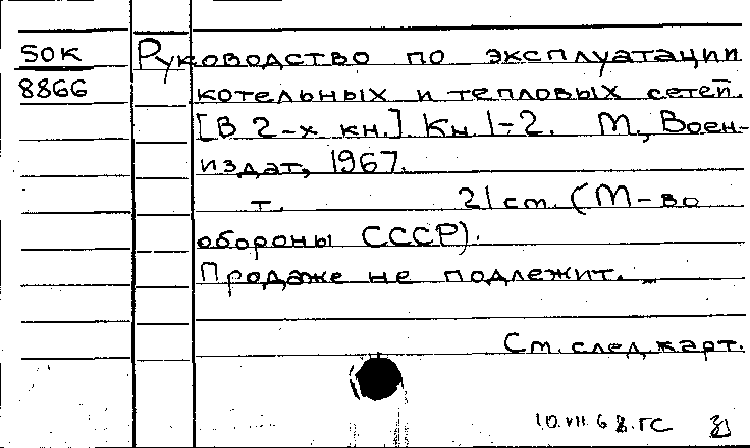 50К
8866
Руководство по эксплуатации
котельных и тепловых сетей.
[В 2-х кн.]. Кн. 1-2. М., Воен-
издат, 1967.
т. 21 см. (М-во
обороны СССР).
Продаже не подлежит.
См. след. карт.
10.VII.68.ГС